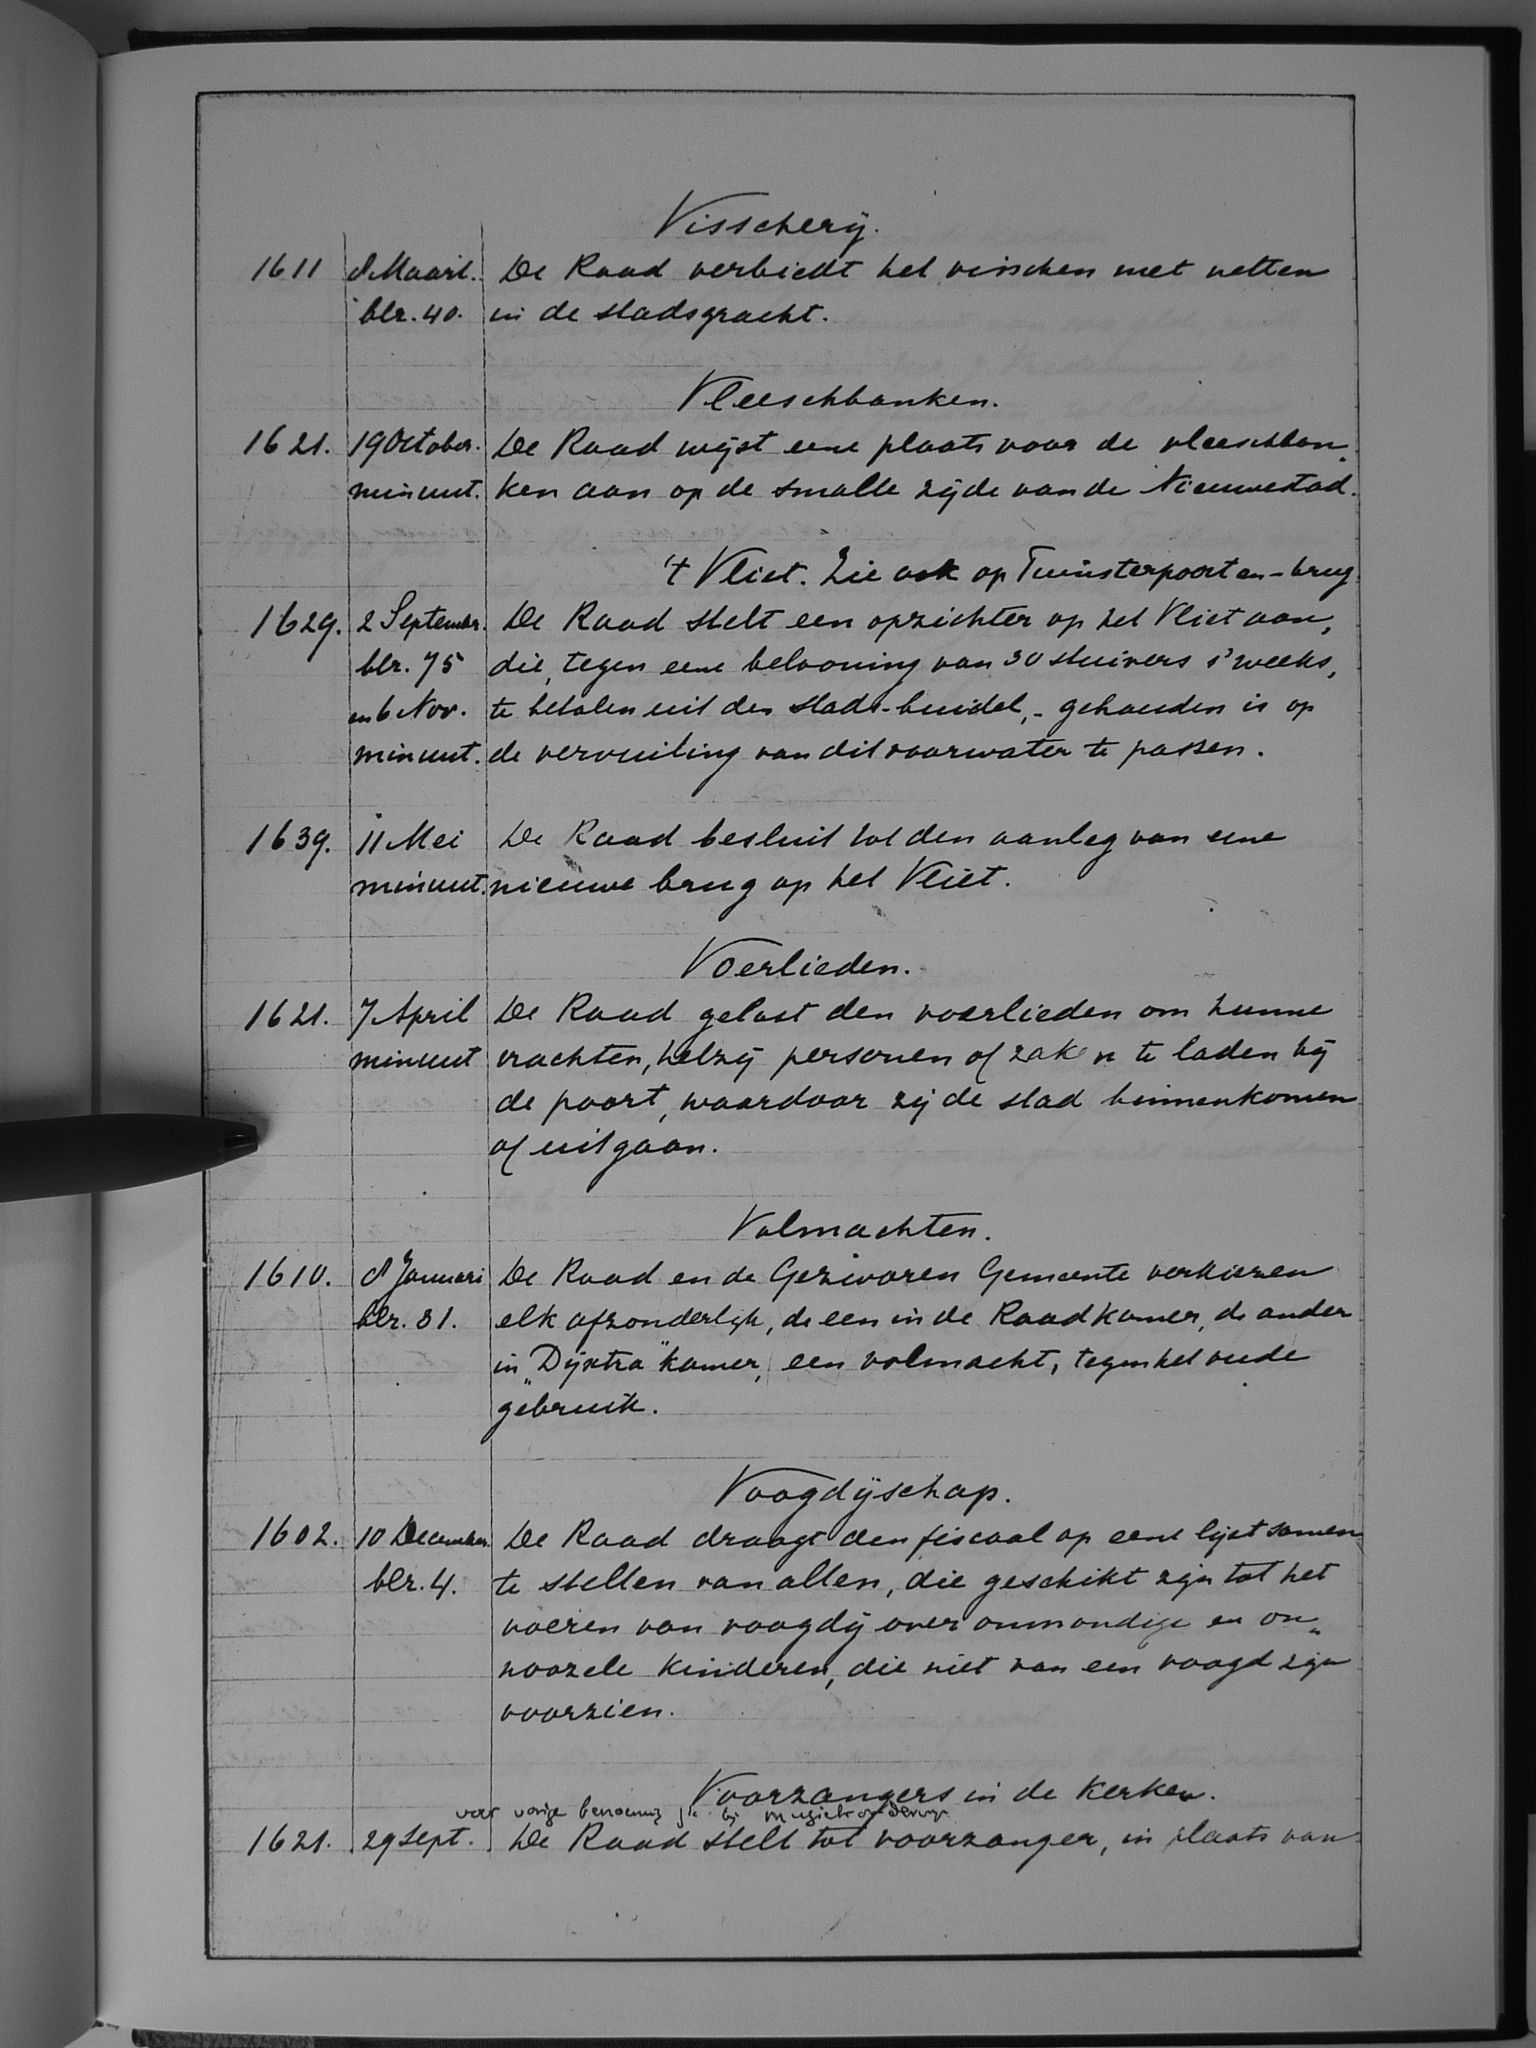 Visscherij.
1611 8 Maart. De Raad verbiedt het visschen met netten
blz. 40. in de stadsgracht.
Vleeschbanken.
1621. 19 October. De Raad wijst eene plaats voor de vleeschban„
minuut. ken aan op de smalle zijde van de Nieuwestad.
't Vliet. Zie ook op Tuinsterpoort en -brug.
1629. 2 September. De Raad stelt een opzichter op het Vliet aan,
blz. 75 die, tegen eene belooning van 30 stuivers s'weeks,
en 6 Nov. te betalen uit den stads-buidel, - gehouden is op
minuut. de vervuiling van dit vaarwater te passen.
1639. 11 Mei De Raad besluit tot den aanleg van eene
minuut. nieuwe brug op het Vliet.
Voerlieden.
1621. 7 April De Raad gelast den voerlieden om hunne
minuut vrachten, hetzij personen of zaken te laden bij
de poort, waardoor zij de stad binnenkomen
of uitgaan.
Volmachten.
1610. 8 Januari De Raad en de Gezworen Gemeente verkiezen
blz. 31. elk afzonderlijk, de een in de Raadkamer, de ander
in „Dijxtra" kamer, een volmacht, tegen het oude
gebruik.
Voogdijschap.
1602. 10 December. De Raad draagt den fiscaal op eene lijst samen
blz. 4. te stellen van allen, die geschikt zijn tot het
voeren van voogdij over onmondige en on„
noozele kinderen, die niet van een voogd zijn
voorzien.
Voorzangers in de Kerken.
voor vorige benoeming bij
1621. 29 Sept. De Raad stelt tot voorzanger, in plaats van